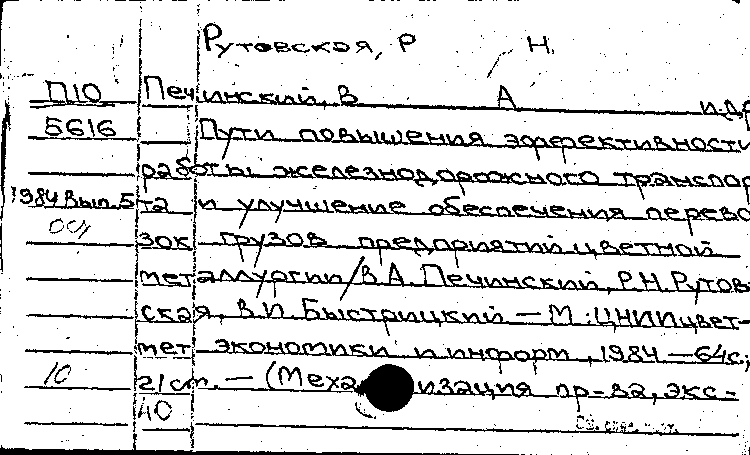 Рутовская, Р Н.
П10 Печинский, В А и др
5616 Пути повышения эффективности
работы железнодорожного транспор
1984 Вып. 5 та и улучшение обеспечения перево
зок грузов предприятий цветной
металлургии/В.А. Печинский, Р.Н. Рутов
ская, В.И. Быстрицкий — М.: ЦНИИцвет-
мет экономики и информ, 1984 — 64с;
10 21см. — (Меха изация пр-ва, экс-
40